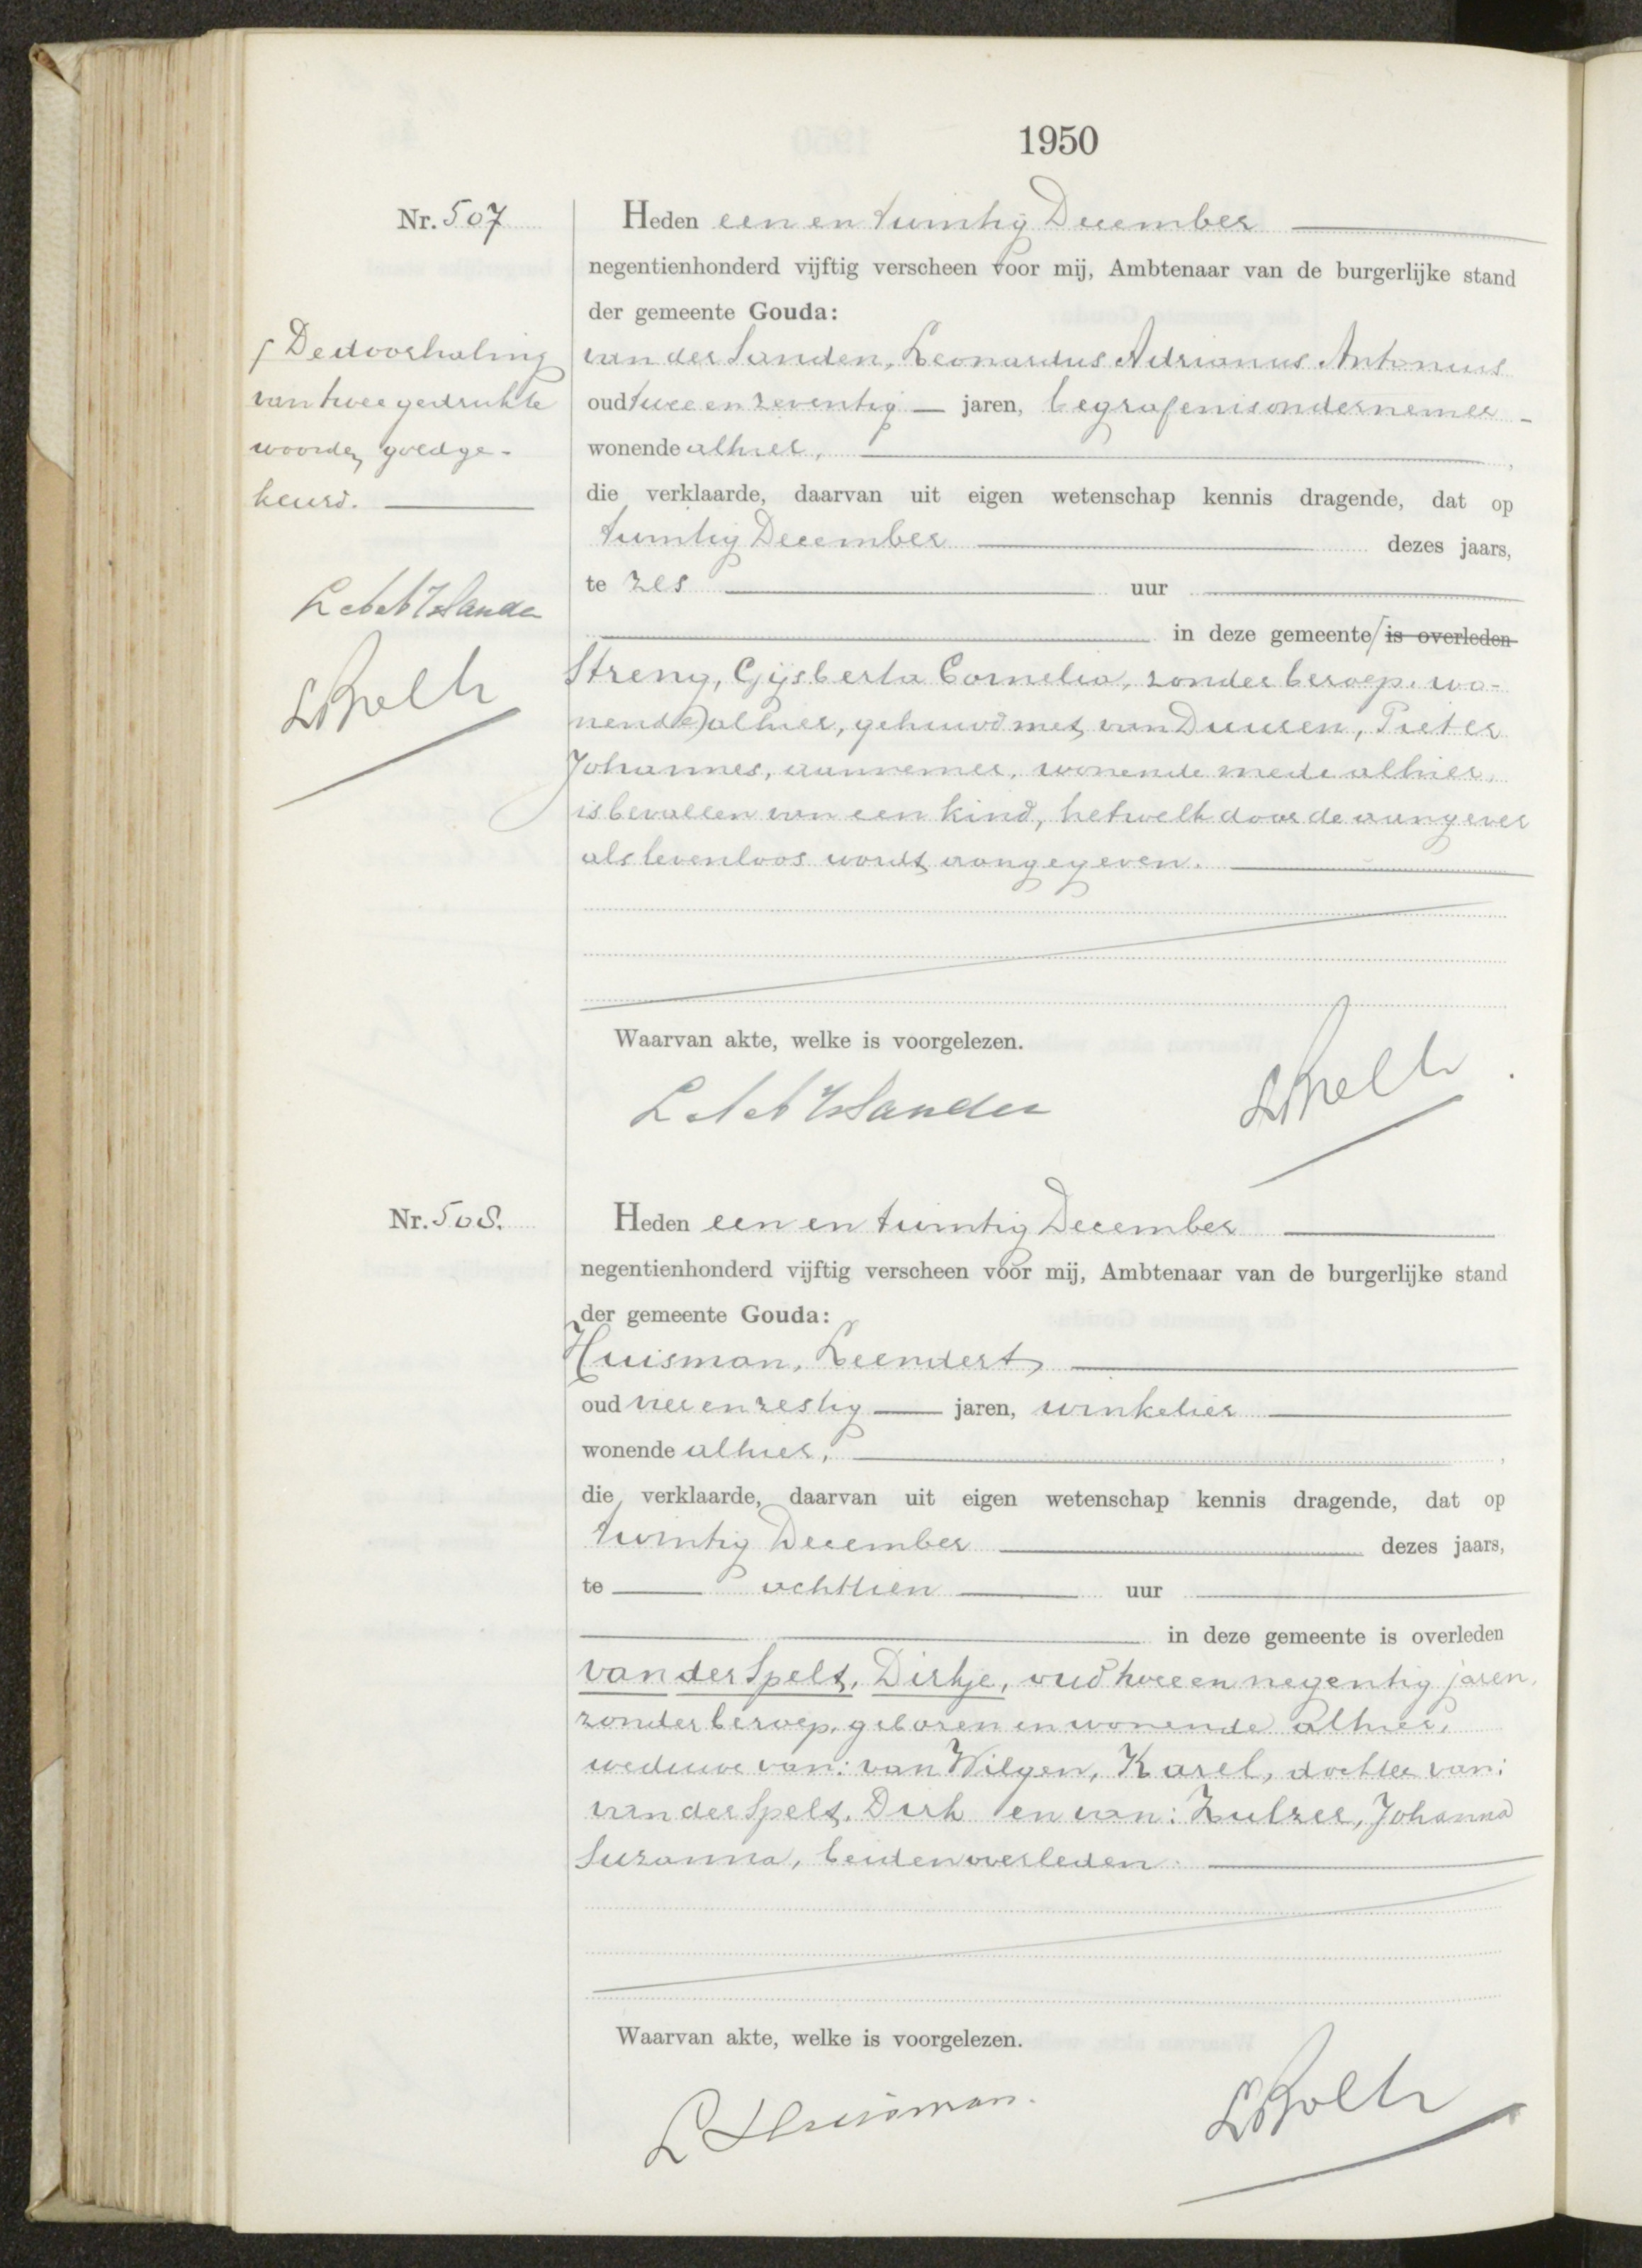 1950
Nr. 507
Heden een en twintig December
negentienhonderd vijftig verscheen voor mij, Ambtenaar van de burgerlijke stand
der gemeente Gouda:
van der Sanden, Leonardus Adrianus Antonius
oud twee en zeventig jaren, begrafenisondernemer
wonende alhier,
die verklaarde, daarvan uit eigen wetenschap kennis dragende, dat op
twintig December dezes jaars,
te zes uur
in deze gemeente is overleden
Streng, Gijsberta Cornelia, zonder beroep, wo-
nende alhier, gehuwd met van Duuren, Pieter
Johannes, aannemer, wonende mede alhier,
is bevallen van een kind, hetwelk door de aangever
als levenloos wordt aangegeven.
Waarvan akte, welke is voorgelezen.
De doorhaling
van twee gedrukte
woorden goedge-
keurd.
Nr. 508.
Heden een en twintig December
negentienhonderd vijftig verscheen voor mij, Ambtenaar van de burgerlijke stand
der gemeente Gouda:
Huisman, Leendert
oud vier en zestig jaren, winkelier
wonende alhier,
die verklaarde, daarvan uit eigen wetenschap kennis dragende, dat op
twintig December dezes jaars,
te achttien uur
in deze gemeente is overleden
van der Spelt, Dirkje, oud twee en negentig jaren,
zonder beroep, geboren en wonende alhier,
weduwe van: van Wilgen, Karel, dochter van:
van der Spelt, Dirk en van: Zulzer, Johanna
Suzanna, beiden overleden.
Waarvan akte, welke is voorgelezen.
L Huisman.